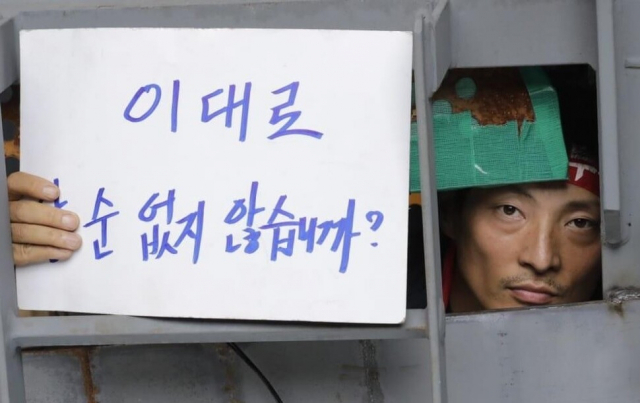 이대로
순 없지 않습니까?